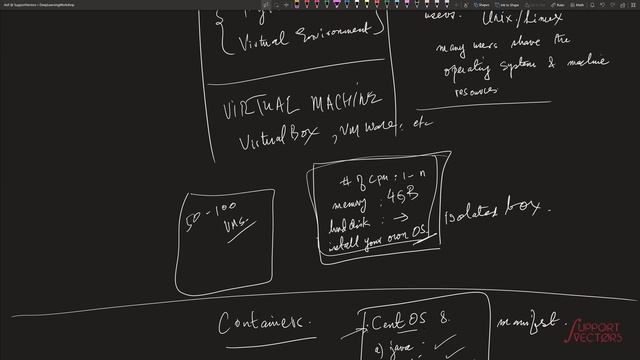 Asif @ SupportVectors > DeepLearningWorkshop
Ink to Shape
Ink to Text
Virtual Environment
users. Unix/Linux
many users share the
operating system & machine
resources
VIRTUAL MACHINE
VirtualBox, VM Ware, etc
50-100
VMs.
# of cpu : 1-n
memory : 4GB
hard disk : →
install your own OS.
isolated box.
Containers.
CentOS 8.
manifest.
a) java :
SUPPORT
VECTORS